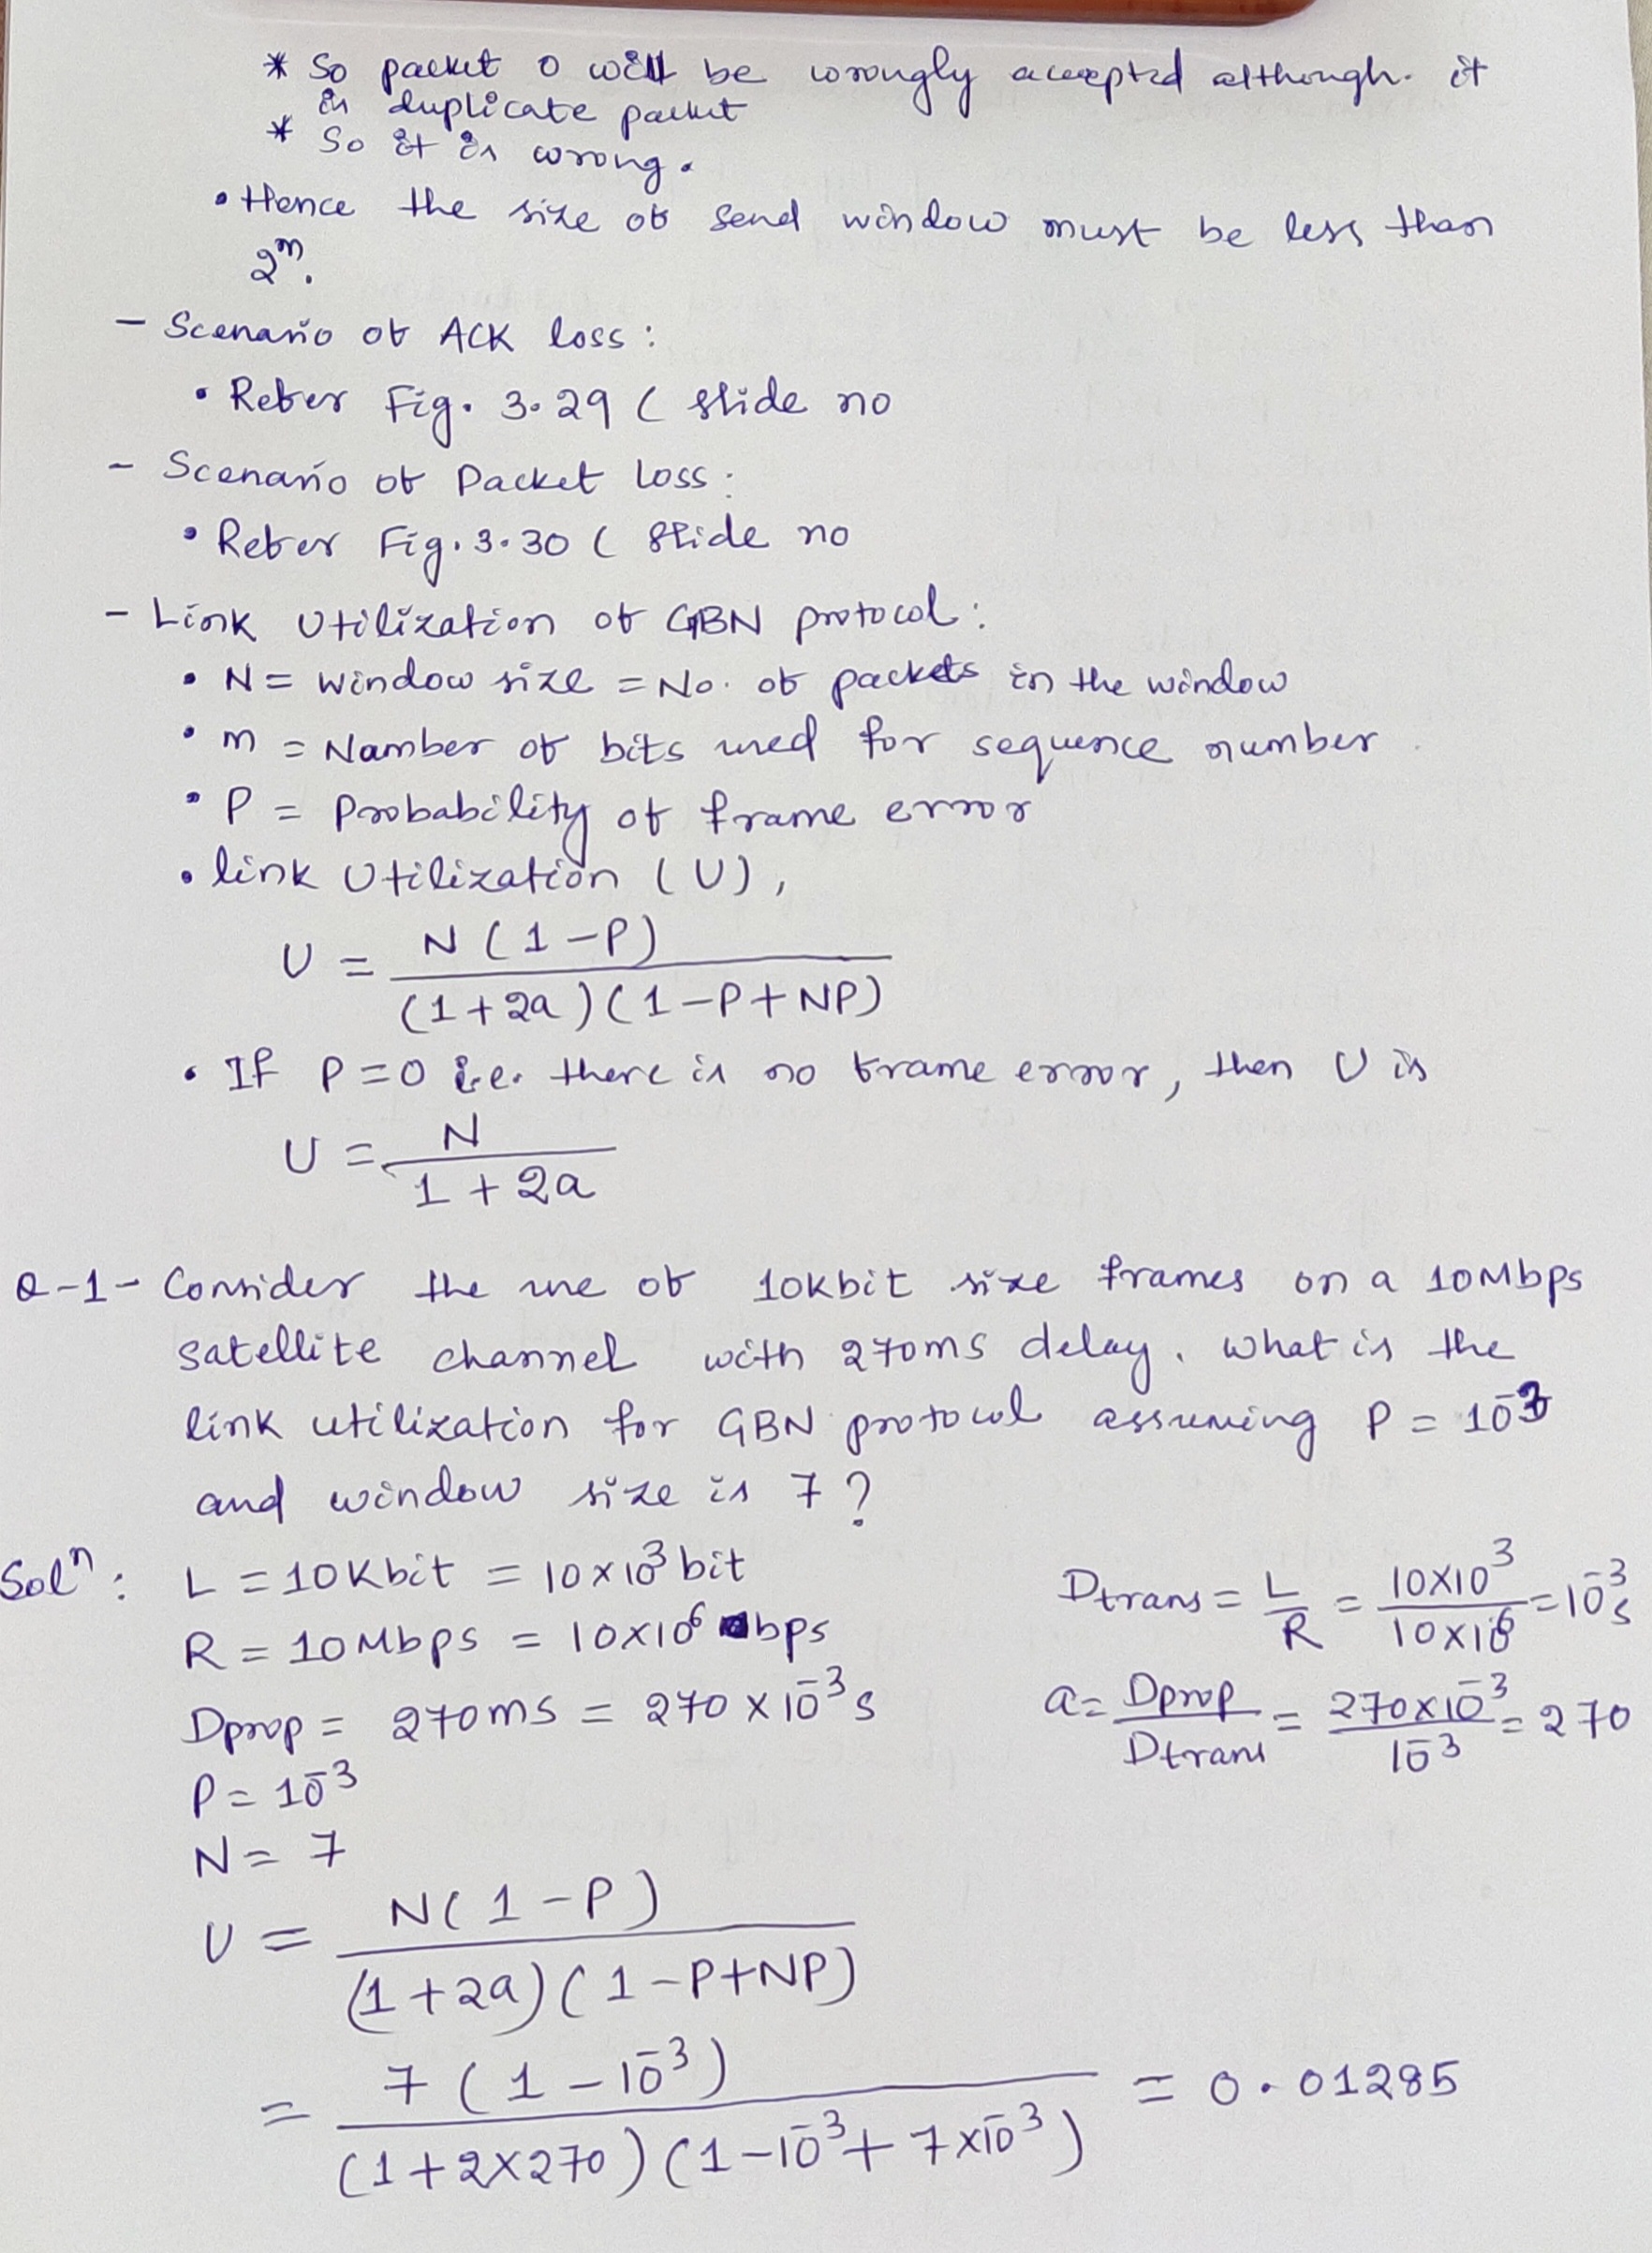 * So packet 0 will be wrongly accepted although it
is duplicate packet
* So it is wrong.
• Hence the size of send window must be less than
2^m.
- Scenario of ACK loss:
• Refer Fig. 3.29 ( slide no
- Scenario of Packet Loss:
• Refer Fig. 3.30 ( slide no
- Link Utilization of GBN protocol:
• N = window size = No. of packets in the window
• m = Number of bits used for sequence number.
• P = Probability of frame error
• link Utilization (U),
U = N(1-P) / (1+2a)(1-P+NP)
• If P=0 i.e. there is no frame error, then U is
U = N / 1+2a
Q-1- Consider the use of 10kbit size frames on a 10Mbps
satellite channel with 270ms delay. What is the
link utilization for GBN protocol assuming P = 10^-3
and window size is 7?
Sol^n: L = 10Kbit = 10×10^3 bit
Dtrans = L/R = 10×10^3 / 10×10^6 = 10^-3 s
R = 10Mbps = 10×10^6 bps
Dprop = 270ms = 270×10^-3 s
a = Dprop/Dtrans = 270×10^-3 / 10^-3 = 270
P = 10^-3
N = 7
U = N(1-P) / (1+2a)(1-P+NP)
= 7(1-10^-3) / (1+2×270)(1-10^-3+7×10^-3) = 0.01285